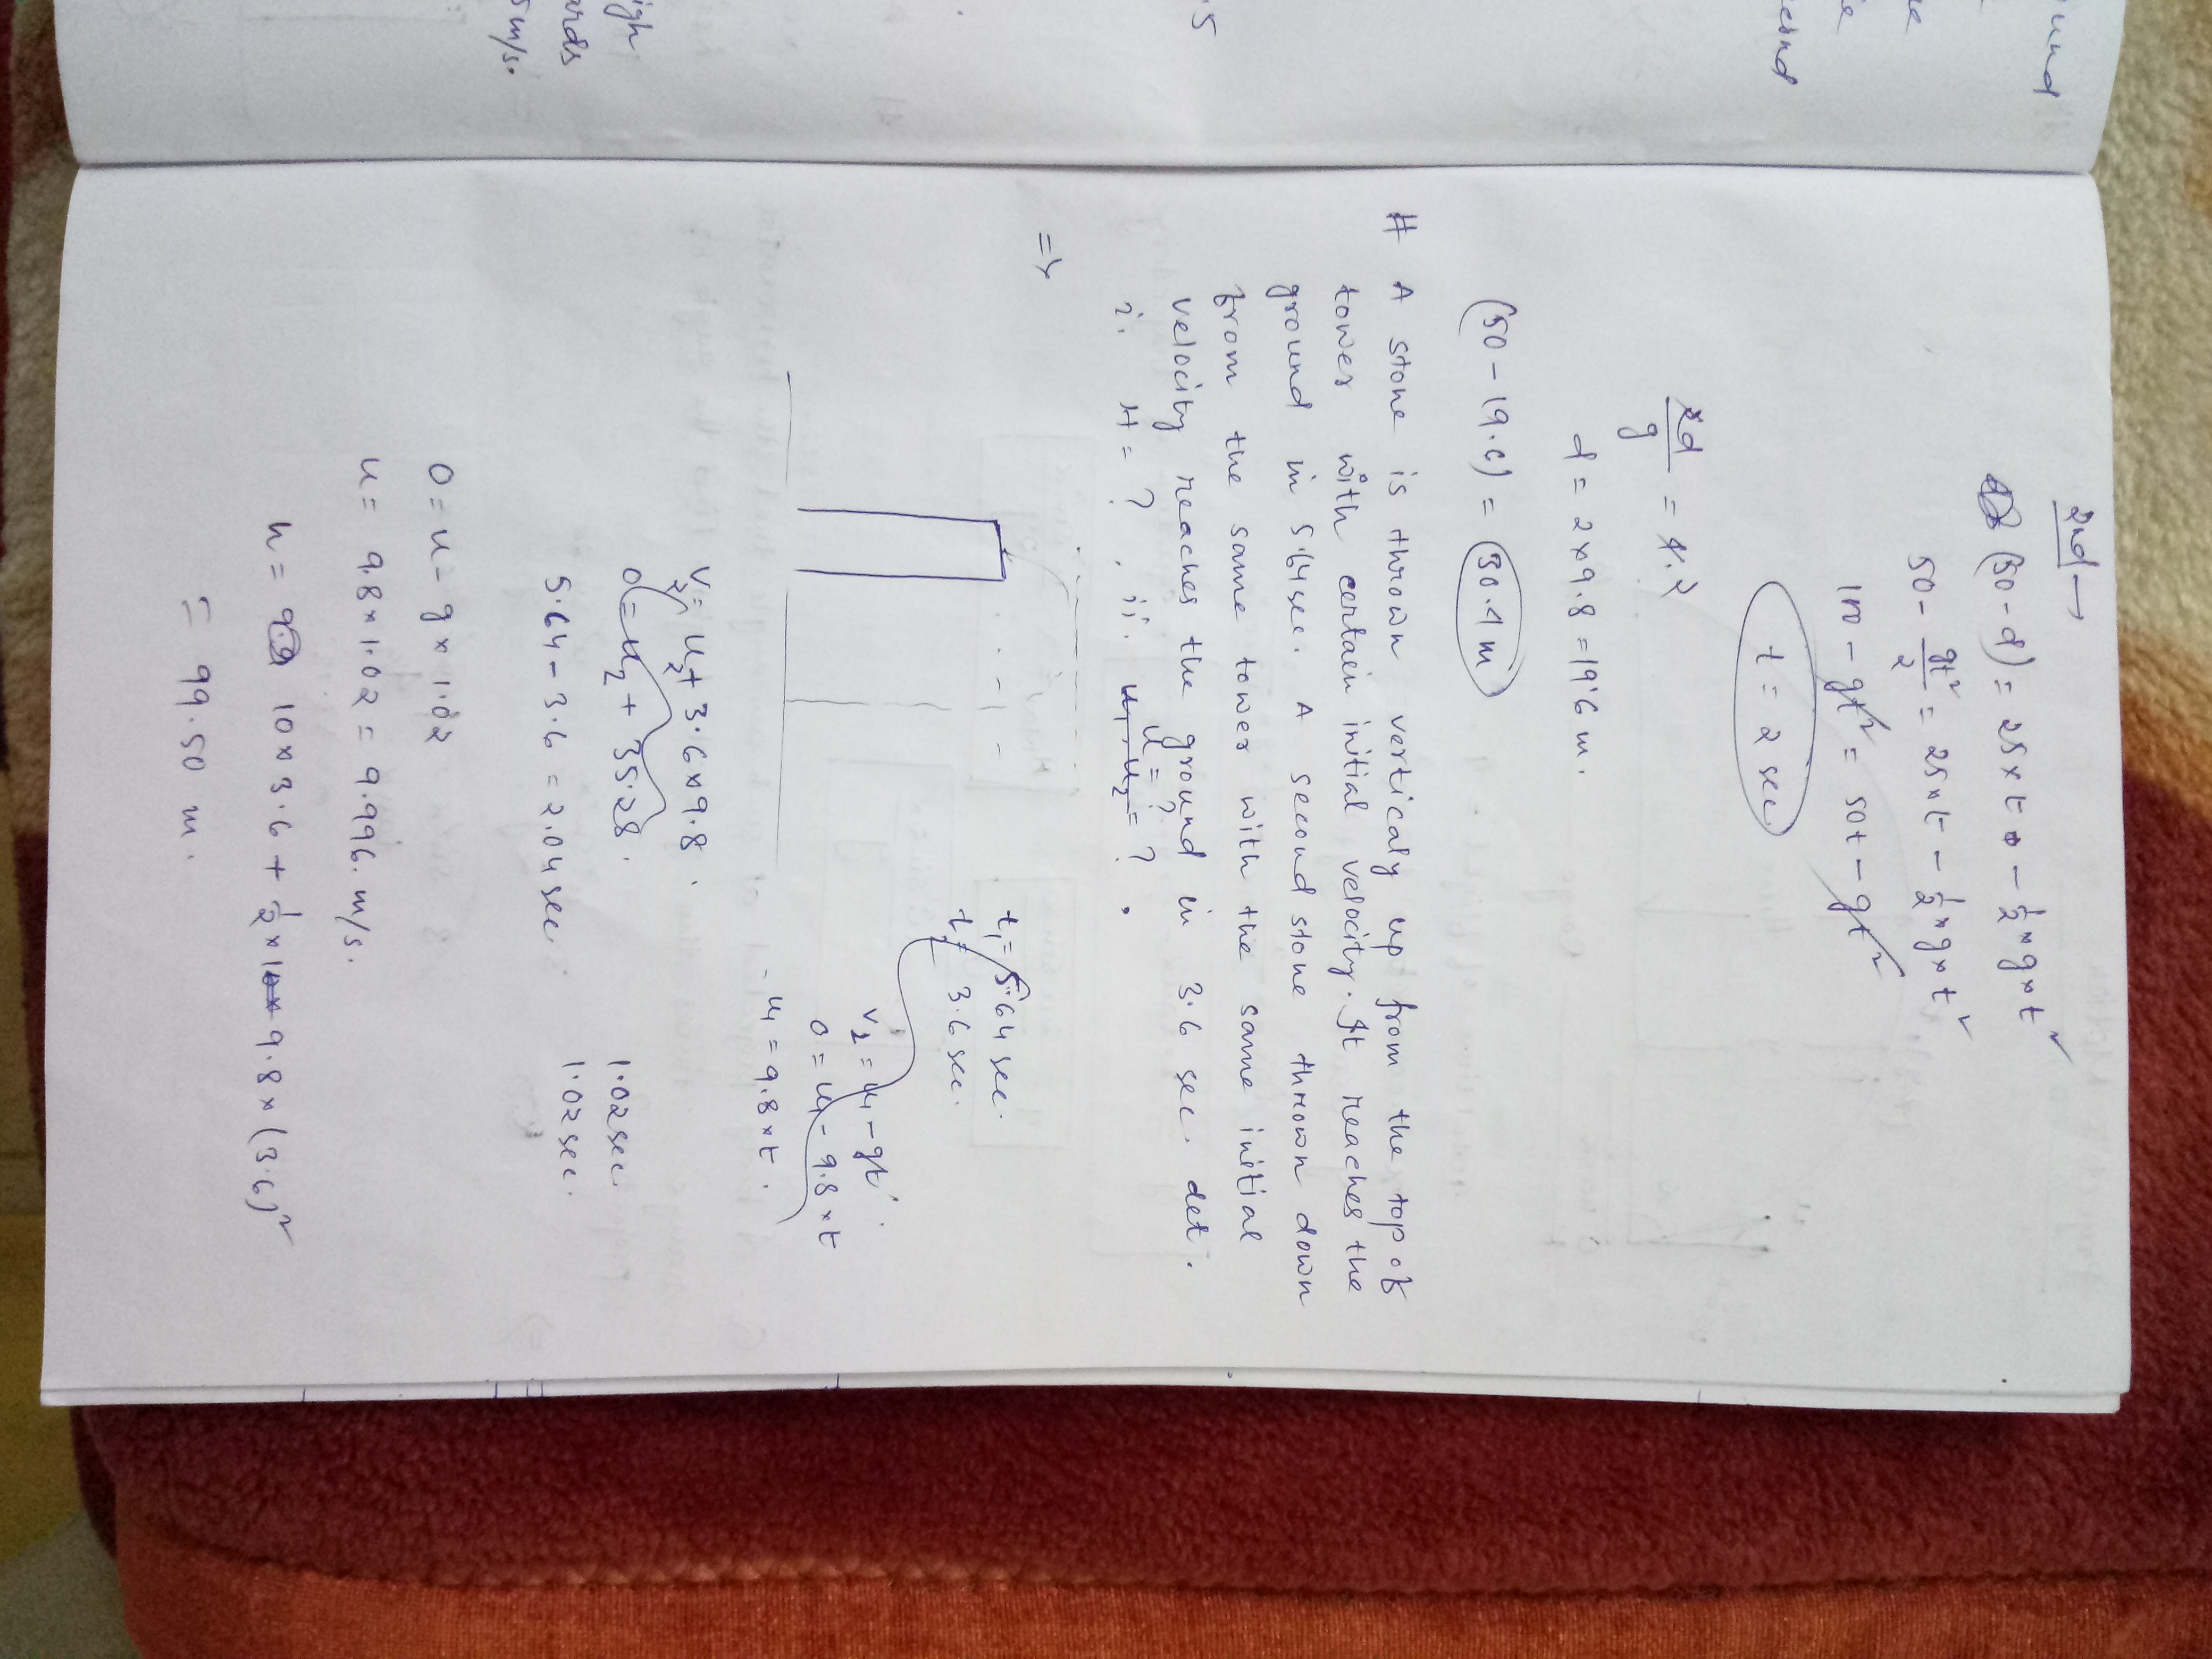 und
e
cond
.5
igh
ards
5 m/s.
2nd →
(50 - d) = 25 × t - 1/2 × g × t²
50 - gt²/2 = 25 × t - 1/2 × g × t²
100 - gt² = 50t - gt²
t = 2 sec
2d/g = 4.2
d = 2 × 9.8 = 19.6 m.
(50 - 19.6) = 30.4 m
# A stone is thrown verticaly up from the top of
tower with certain initial velocity. It reaches the
ground in 5.64 sec. A second stone thrown down
from the same tower with the same initial
velocity reaches the ground in 3.6 sec. det.
u = ?
i. H = ? , ii. u₁, u₂ = ? .
=>
t₁ = 5.64 sec.
t₂ = 3.6 sec.
v₂ = u₁ - gt
0 = u₁ - 9.8 × t
u₁ = 9.8 × t .
v₂ = u₂ + 3.6 × 9.8 .
0 = u₂ + 35.28 .
1.02 sec.
1.02 sec.
5.64 - 3.6 = 2.04 sec
0 = u - g × 1.02
u = 9.8 × 1.02 = 9.996. m/s.
h = 10 × 3.6 + 1/2 × 9.8 × (3.6)²
= 99.50 m.